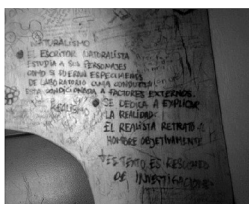 NATURALISMO
EL ESCRITOR NATURALISTA
ESTUDIA A SUS PERSONAJES
COMO SI FUERAN EXPERIMENTOS
DE LABORATORIO CUYA CONDUCTA
ESTA CONDICIONADA A FACTORES EXTERNOS.
REALISMO
SE DEDICA A EXPLICAR
LA REALIDAD.
EL REALISTA RETRATÓ AL
HOMBRE OBJETIVAMENTE
TEXTO ES RESULTADO
DE INVESTIGACIONES